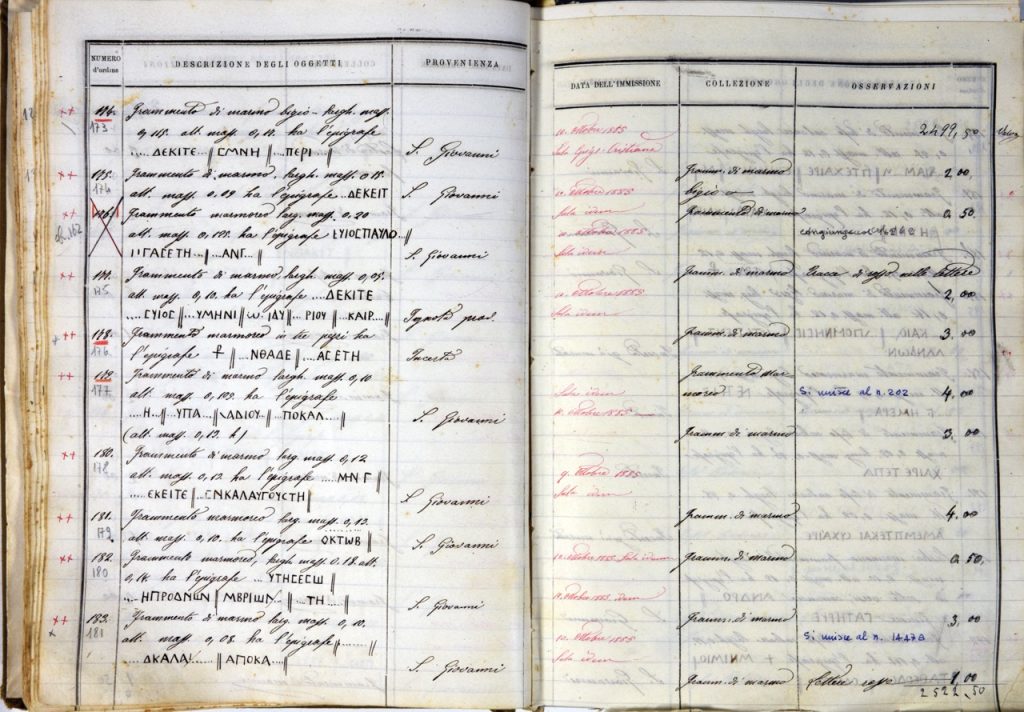 NUMERO d'ordine
DESCRIZIONE DEGLI OGGETTI
PROVENIENZA
174. Frammento di marmo bigio - largh. mass.
173
0,115. alt. mass. 0,12. ha l'epigrafe
..... ΔΕΚΙΤΕ || ϹΜΝΗ || ΠΕΡΙ |
S. Giovanni
175. Frammento di marmo. largh. mass. 0.15.
174
alt. mass. 0.09 ha l'epigrafe .. ΔΕΚΕΙΤ
S. Giovanni
Frammento marmoreo larg. mass. 0,20
alt. mass. 0,125. ha l'epigrafe ΕΥΙΟϹΠΑΥΛΟ..
ΓΑϹΕΤΗ || ..... ΑΝΓ ....
S. Giovanni
Frammento di marmo largh. mass. 0,05.
175
alt. mass. 0,10. ha l'epigrafe .... ΔΕΚΙΤΕ
ϹΥΙΟϹ || ΥΜΗΝΙ || Ѡ ΙΔΥ || ΡΙΟΥ || ΚΑΙΡ...
Ignota prov.
178. Frammento marmoreo in tre pezzi ha
176
l'epigrafe ☩ || ... ΝΘΑΔΕ || ... ΑϹΕΤΗ
Incerta
Frammento di marmo largh. mass. 0,10
177
alt. mass. 0,105. ha l'epigrafe
.... Η... || .. ΥΠΑ .. || ΑΔΙΟΥ .. || ΠΟΚΑΛ..... ||
S. Giovanni
(alt. mass. 0,13. h)
180. Frammento di marmo larg. mass. 0,12
178
alt. mass. 0,13. ha l'epigrafe .... ΜΝ Γ ||
.... ΕΚΕΙΤΕ || ϹΝΚΑΛΑΥΓΟΥϹΤΗ ||
S. Giovanni
181. Frammento marmoreo larg. mass. 0,13.
179
alt. mass. 0,10. ha l'epigrafe ΟΚΤѠΒ ||
S. Giovanni
182. Frammento marmoreo, largh. mass. 0.18. alt.
180
0,14. ha l'epigrafe ... ΥΤΗϹΕϹѠ
.... ΗΠΡΟΔΝѠΝ || ΜΒΡΙѠΝ || .... ΤΗ ....
S. Giovanni
183. Frammento di marmo larg. mass. 0,10.
181
alt. mass. 0,08. ha l'epigrafe
.... ΔΚΑΛΑ || ..... ΑΠΟΚΑ ....
S. Giovanni
DATA DELL'IMMISSIONE
COLLEZIONE
OSSERVAZIONI
10. Ottobre 1885
2499, 50
Framm. di marmo
2, 00,
bigio
10. Ottobre 1885
Sala idem
Frammento di marmo
0, 50.
10. Ottobre 1885
Sala idem
Framm. di marmo
Tracce di rosso nelle lettere
10. Ottobre 1885
2, 00
Sala idem
Framm. di marmo
3. 00
Frammento mar
moreo
Si unisce al n. 202
4, 00
Sala idem
10. Ottobre 1885
Framm. di marmo
3. 00
9. Ottobre 1885
Sala idem
Framm. di marmo
4. 00
10. Ottobre 1885. Sala idem
Framm. di marmo
0, 50,
10. Ottobre 1885. idem
Framm. di marmo
3, 00
10. Ottobre 1885
Si unisce al n. 1447
Sala idem
Framm. di marmo
Lettere rosse
1, 00
2522, 50